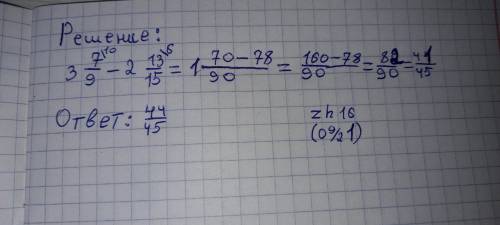 Решение:
3 7/9 \10 - 2 13/15 \6 = 1 70-78/90 = 160-78/90 = 82/90 = 41/45
Ответ: 44/45
zh16
(09/21)